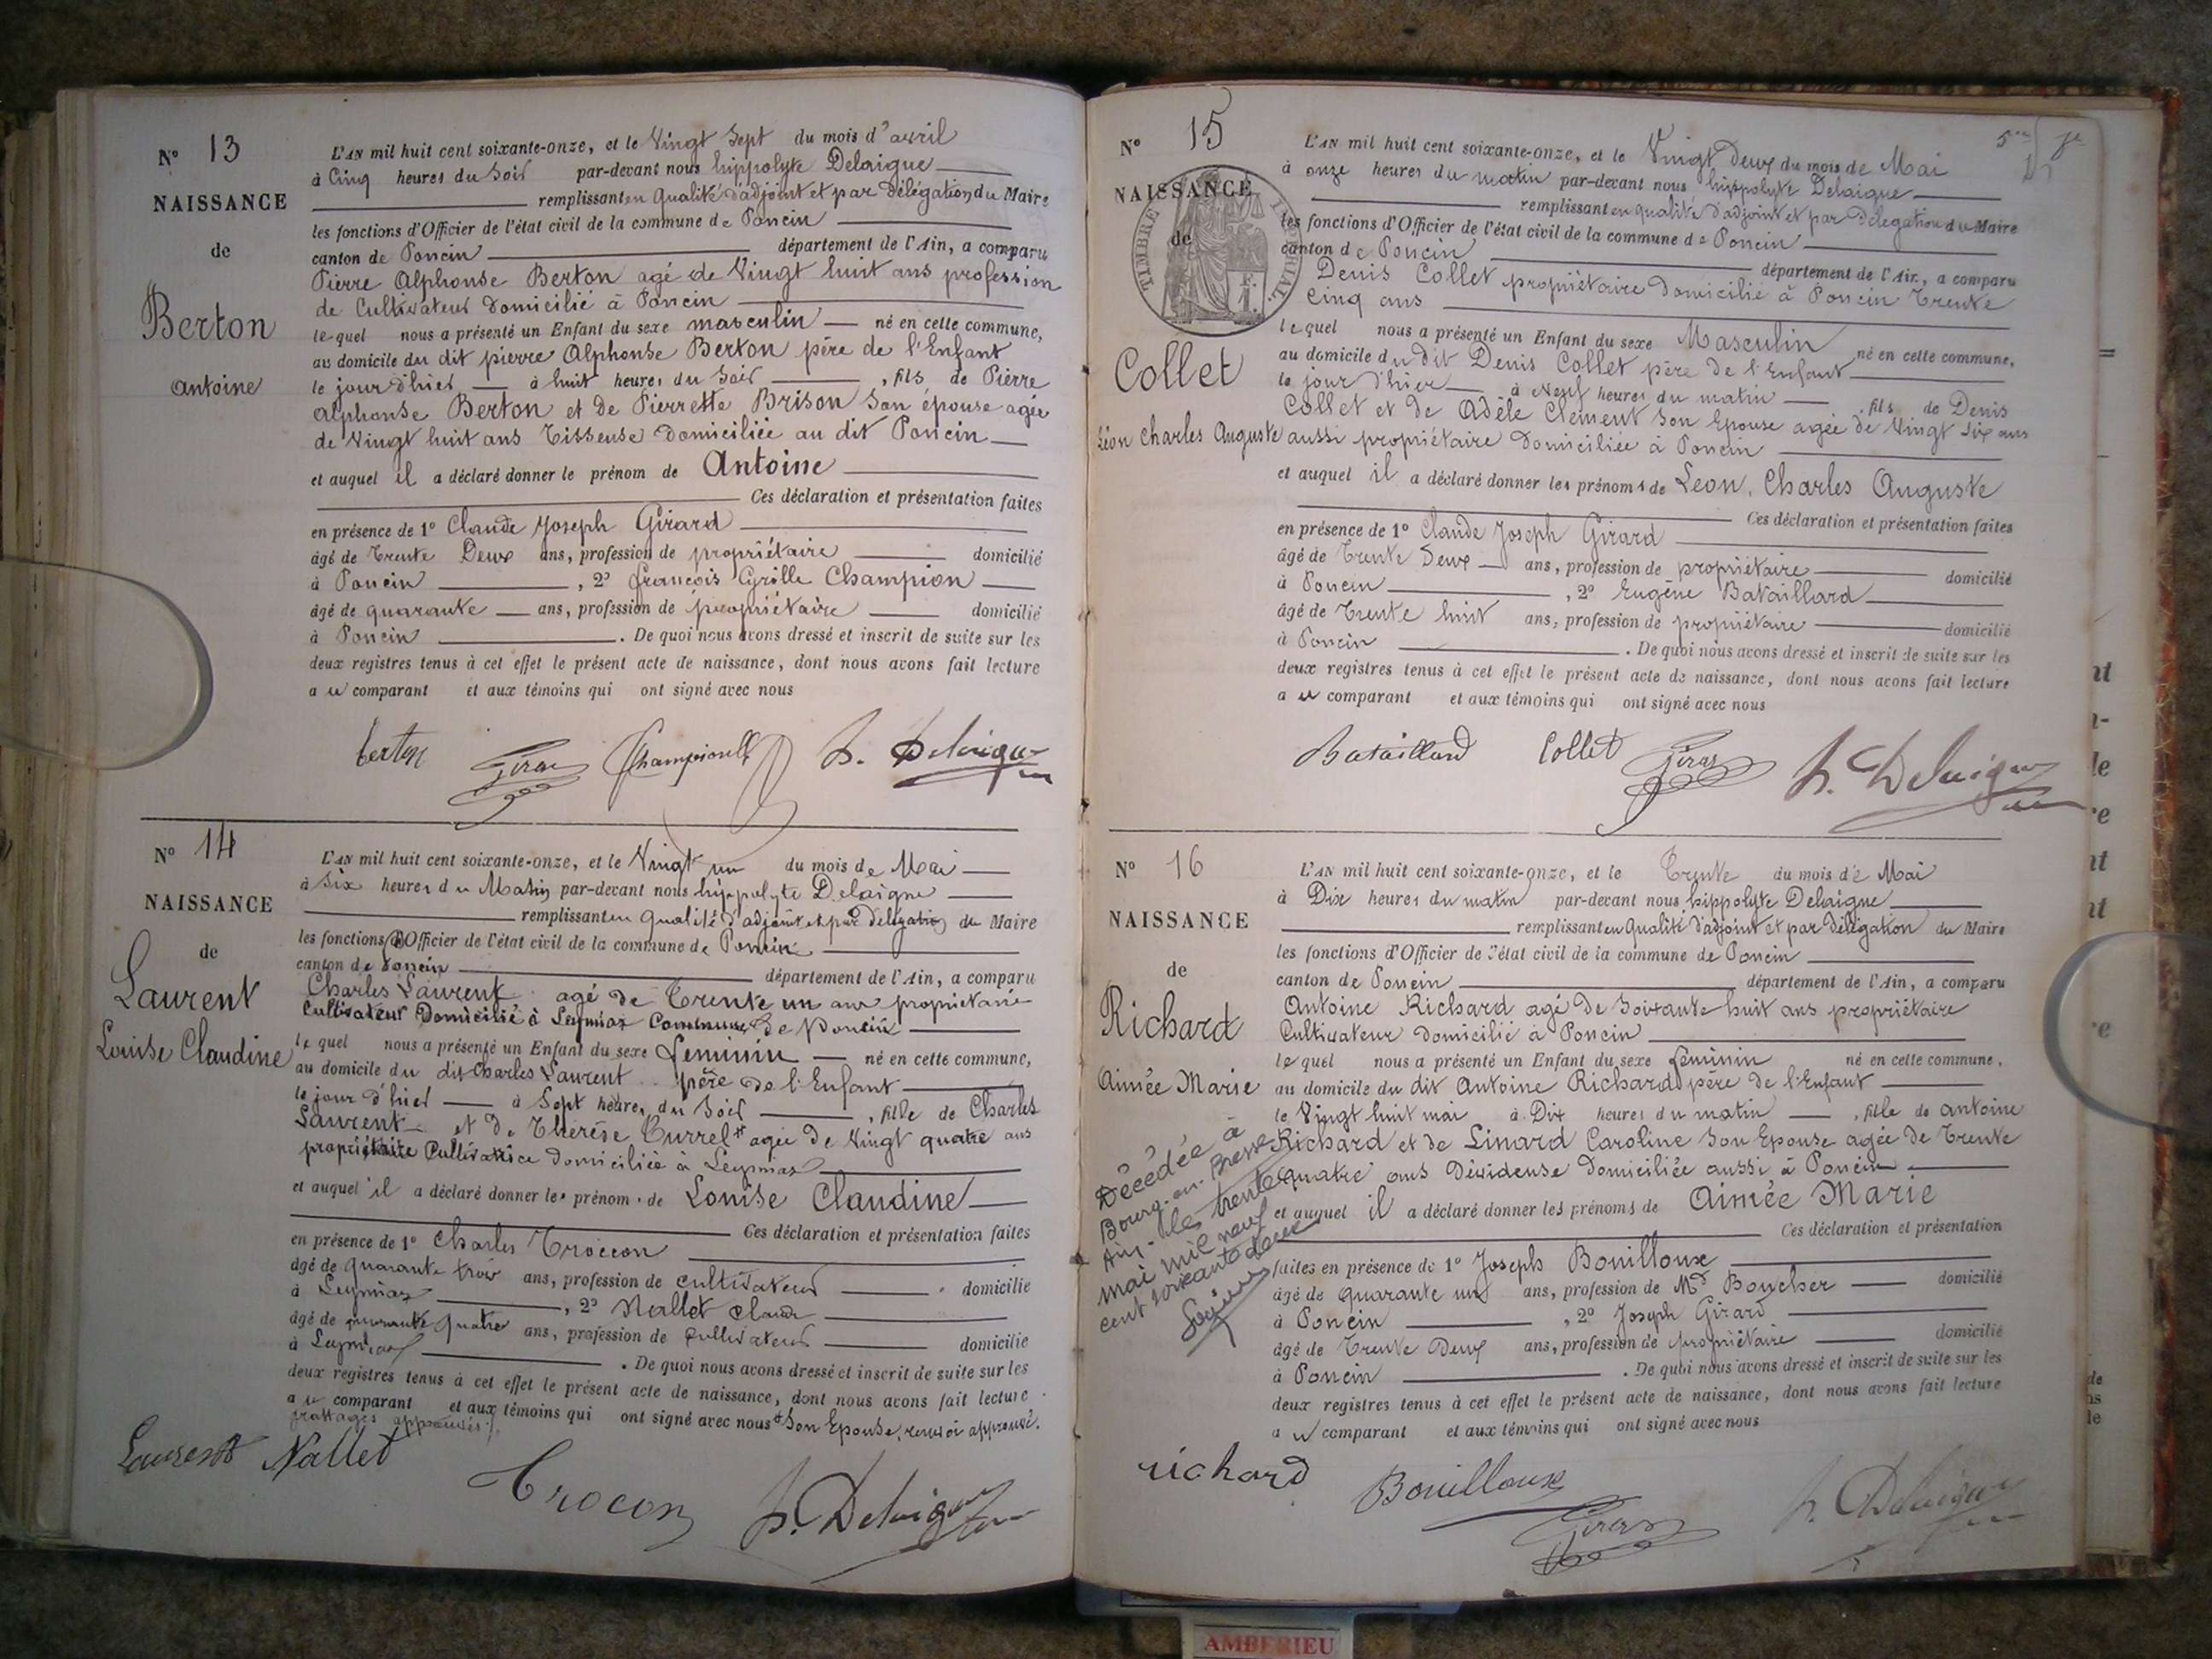 N° 13
NAISSANCE
de
Berton
Antoine
L'AN mil huit cent soixante-onze, et le Vingt Sept du mois d'avril
à Cinq heures du Soir par-devant nous hippolyte Delaigue
remplissant en qualité d'adjoint et par délégation du Maire
les fonctions d'Officier de l'état civil de la commune de Poncin
canton de Poncin département de l'Ain, a comparu
Pierre Alphonse Berton agé de Vingt huit ans profession
de Cultivateur Domicilié à Poncin
le quel nous a présenté un Enfant du sexe masculin né en cette commune,
au domicile du dit pierre Alphonse Berton père de l'Enfant
le jour d'hier à huit heures du Soir , fils de Pierre
Alphonse Berton et de Pierrette Brison Son épouse agée
de Vingt huit ans Tisseuse Domiciliée au dit Poncin
et auquel il a déclaré donner le prénom de Antoine
Ces déclaration et présentation faites
en présence de 1° Claude Joseph Girard
âgé de Trente Deux ans, profession de propriétaire domicilié
à Poncin , 2° françois Cyrille Champion
âgé de quarante ans, profession de propriétaire domicilié
à Poncin . De quoi nous avons dressé et inscrit de suite sur les
deux registres tenus à cet effet le présent acte de naissance, dont nous avons fait lecture
au comparant et aux témoins qui ont signé avec nous
berton Girard H. Delaigue
N° 14
NAISSANCE
de
Laurent
Louise Claudine
L'AN mil huit cent soixante-onze, et le Vingt un du mois de Mai
à Six heures du Matin par-devant nous hippolyte Delaigue
remplissant en qualité d'adjoint et par délégation du Maire
les fonctions d'Officier de l'état civil de la commune de Poncin
canton de Poncin département de l'Ain, a comparu
Charles Laurent agé de Trente un ans propriétaire
Cultivateur Domicilié à Leymiaz Commune de Poncin
le quel nous a présenté un Enfant du sexe feminin né en cette commune,
au domicile du dit Charles Laurent père de l'Enfant
le jour d'hier à Sept heures du Soir , fille de Charles
Laurent et de Thérèse Curret # agée de Vingt quatre ans
propriétaire Cultivatrice domiciliée à Leymiaz
et auquel il a déclaré donner les prénoms de Louise Claudine
Ces déclaration et présentation faites
en présence de 1° Charles Troccon
âgé de quarante trois ans, profession de cultivateur domicilié
à Leymiaz , 2° Nallet Claude
âgé de quarante quatre ans, profession de cultivateur domicilié
à Leymiaz . De quoi nous avons dressé et inscrit de suite sur les
deux registres tenus à cet effet le présent acte de naissance, dont nous avons fait lecture
au comparant et aux témoins qui ont signé avec nous # Son Epouse, renvoi approuvé.
grattages approuvés
Laurent Nallet Trocon H. Delaigue
N° 15
NAISSANCE
de
TIMBRE IMPÉRIAL
Collet
Léon Charles Auguste
L'AN mil huit cent soixante-onze, et le Vingt Deux du mois de Mai
à onze heures du matin par-devant nous hippolyte Delaigue
remplissant en qualité d'adjoint et par Délégation du Maire
les fonctions d'Officier de l'état civil de la commune de Poncin
canton de Poncin département de l'Ain, a comparu
Denis Collet propriétaire Domicilié à Poncin Trente
cinq ans
le quel nous a présenté un Enfant du sexe Masculin né en cette commune,
au domicile du dit Denis Collet père de l'Enfant
le jour d'hier à Neuf heures du matin , fils de Denis
Collet et de Adèle Clément Son Epouse agée de Vingt Six ans
aussi propriétaire Domiciliée à Poncin
et auquel il a déclaré donner les prénoms de Leon, Charles Auguste
Ces déclaration et présentation faites
en présence de 1° Claude Joseph Girard
âgé de Trente Deux ans, profession de propriétaire domicilié
à Poncin , 2° Eugène Bataillard
âgé de Trente huit ans, profession de propriétaire domicilié
à Poncin . De quoi nous avons dressé et inscrit de suite sur les
deux registres tenus à cet effet le présent acte de naissance, dont nous avons fait lecture
au comparant et aux témoins qui ont signé avec nous
Bataillard Collet Girard H. Delaigue
N° 16
NAISSANCE
de
Richard
Aimée Marie
L'AN mil huit cent soixante-onze, et le Trente du mois de Mai
à Dix heures du matin par-devant nous hippolyte Delaigue
remplissant en qualité d'adjoint et par Délégation du Maire
les fonctions d'Officier de l'état civil de la commune de Poncin
canton de Poncin département de l'Ain, a comparu
Antoine Richard agé de Soixante huit ans propriétaire
Cultivateur domicilié à Poncin
le quel nous a présenté un Enfant du sexe féminin né en cette commune,
au domicile du dit Antoine Richard père de l'Enfant
le Vingt huit mai à Dix heures du matin , fille de antoine
Richard et de Linard Caroline Son Epouse agée de Trente
quatre ans Dévideuse Domiciliée aussi à Poncin
et auquel il a déclaré donner les prénoms de Aimée Marie
Ces déclaration et présentation
faites en présence de 1° Joseph Bouilloux
âgé de quarante un ans, profession de Md Boucher domicilié
à Poncin , 2° Joseph Girard
âgé de Trente Deux ans, profession de propriétaire domicilié
à Poncin . De quoi nous avons dressé et inscrit de suite sur les
deux registres tenus à cet effet le présent acte de naissance, dont nous avons fait lecture
au comparant et aux témoins qui ont signé avec nous
Décédée à
Bourg-en-Bresse
Ain le trente
mai mil neuf
cent soixante deux
richard Bouilloux Girard H. Delaigue
AMBERIEU